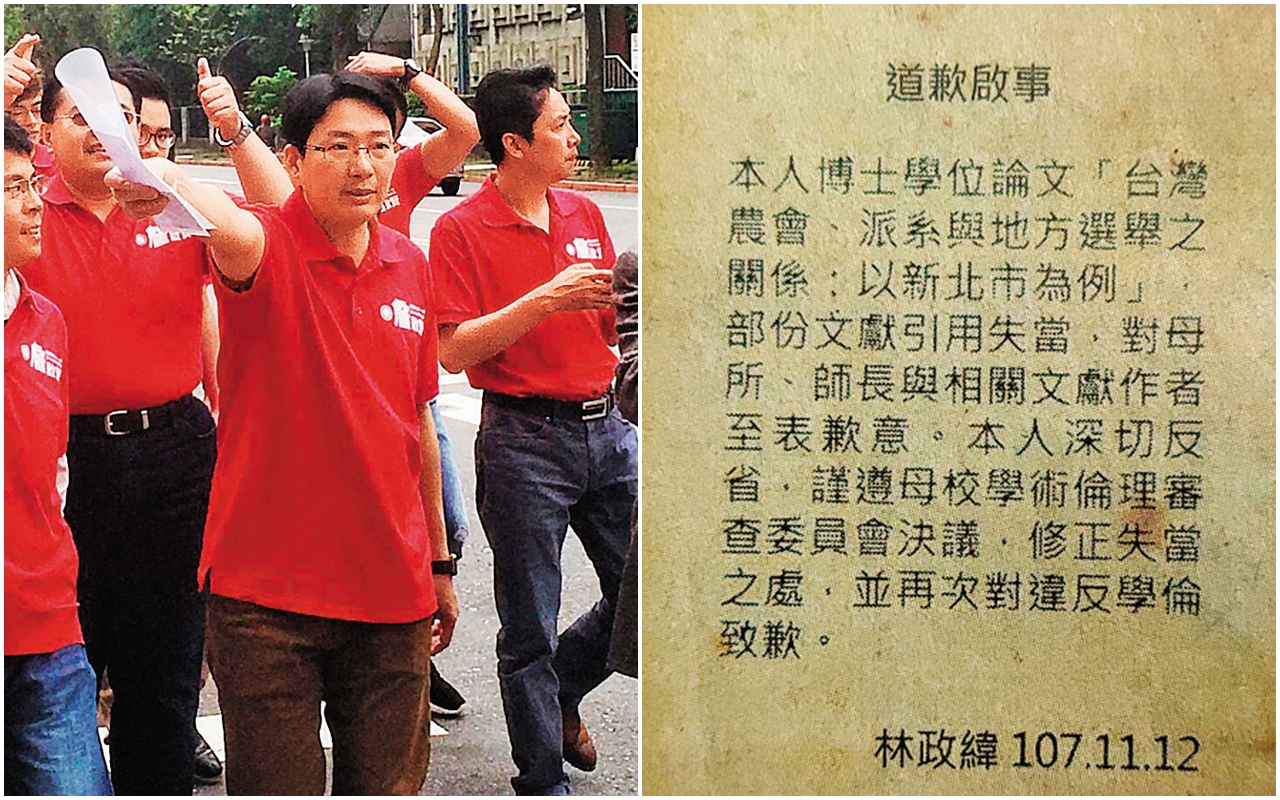 道歉啟事
本人博士學位論文「台灣
農會、派系與地方選舉之
關係：以新北市為例」，
部份文獻引用失當，對母
所、師長與相關文獻作者
至表歉意。本人深切反
省，謹遵母校學術倫理審
查委員會決議，修正失當
之處，並再次對違反學倫
致歉。
林政緯 107.11.12